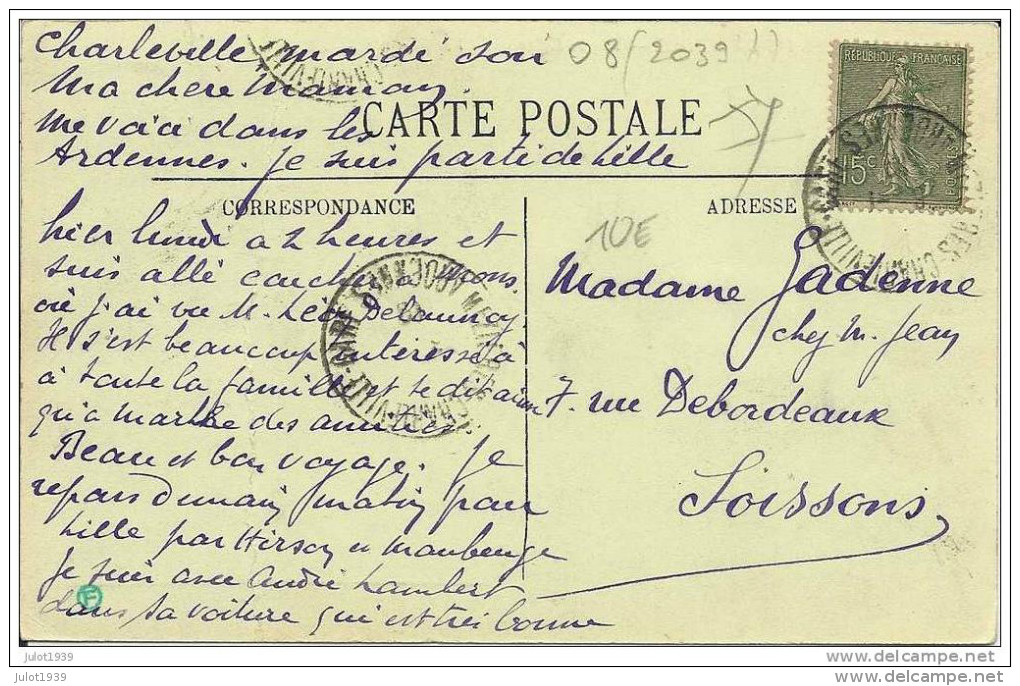 Charleville mardi soir
08(2039)
Ma chere Maman,
CARTE POSTALE
me voici dans les
Ardennes. Je suis parti de Lille
REPUBLIQUE FRANÇAISE
15c
CORRESPONDANCE
ADRESSE
10E
hier lundi à 2 heures et
suis allé coucher à Mons.
où j'ai vu M. Léon Delaunoy.
Il s'est beaucoup intéressé à
à toute la famille et te dit
qu'à Marthe des amitiés.
Beau et bon voyage. Je
repars demain matin pour
Lille par Hirson et Maubeuge
Je suis avec André Lambert
dans sa voiture qui est très bonne
Madame Gadenne
chez M. Jean
7. rue Debordeaux
Soissons
F
julot1939
julot1939
www.delcampe.net
www.delcampe.net